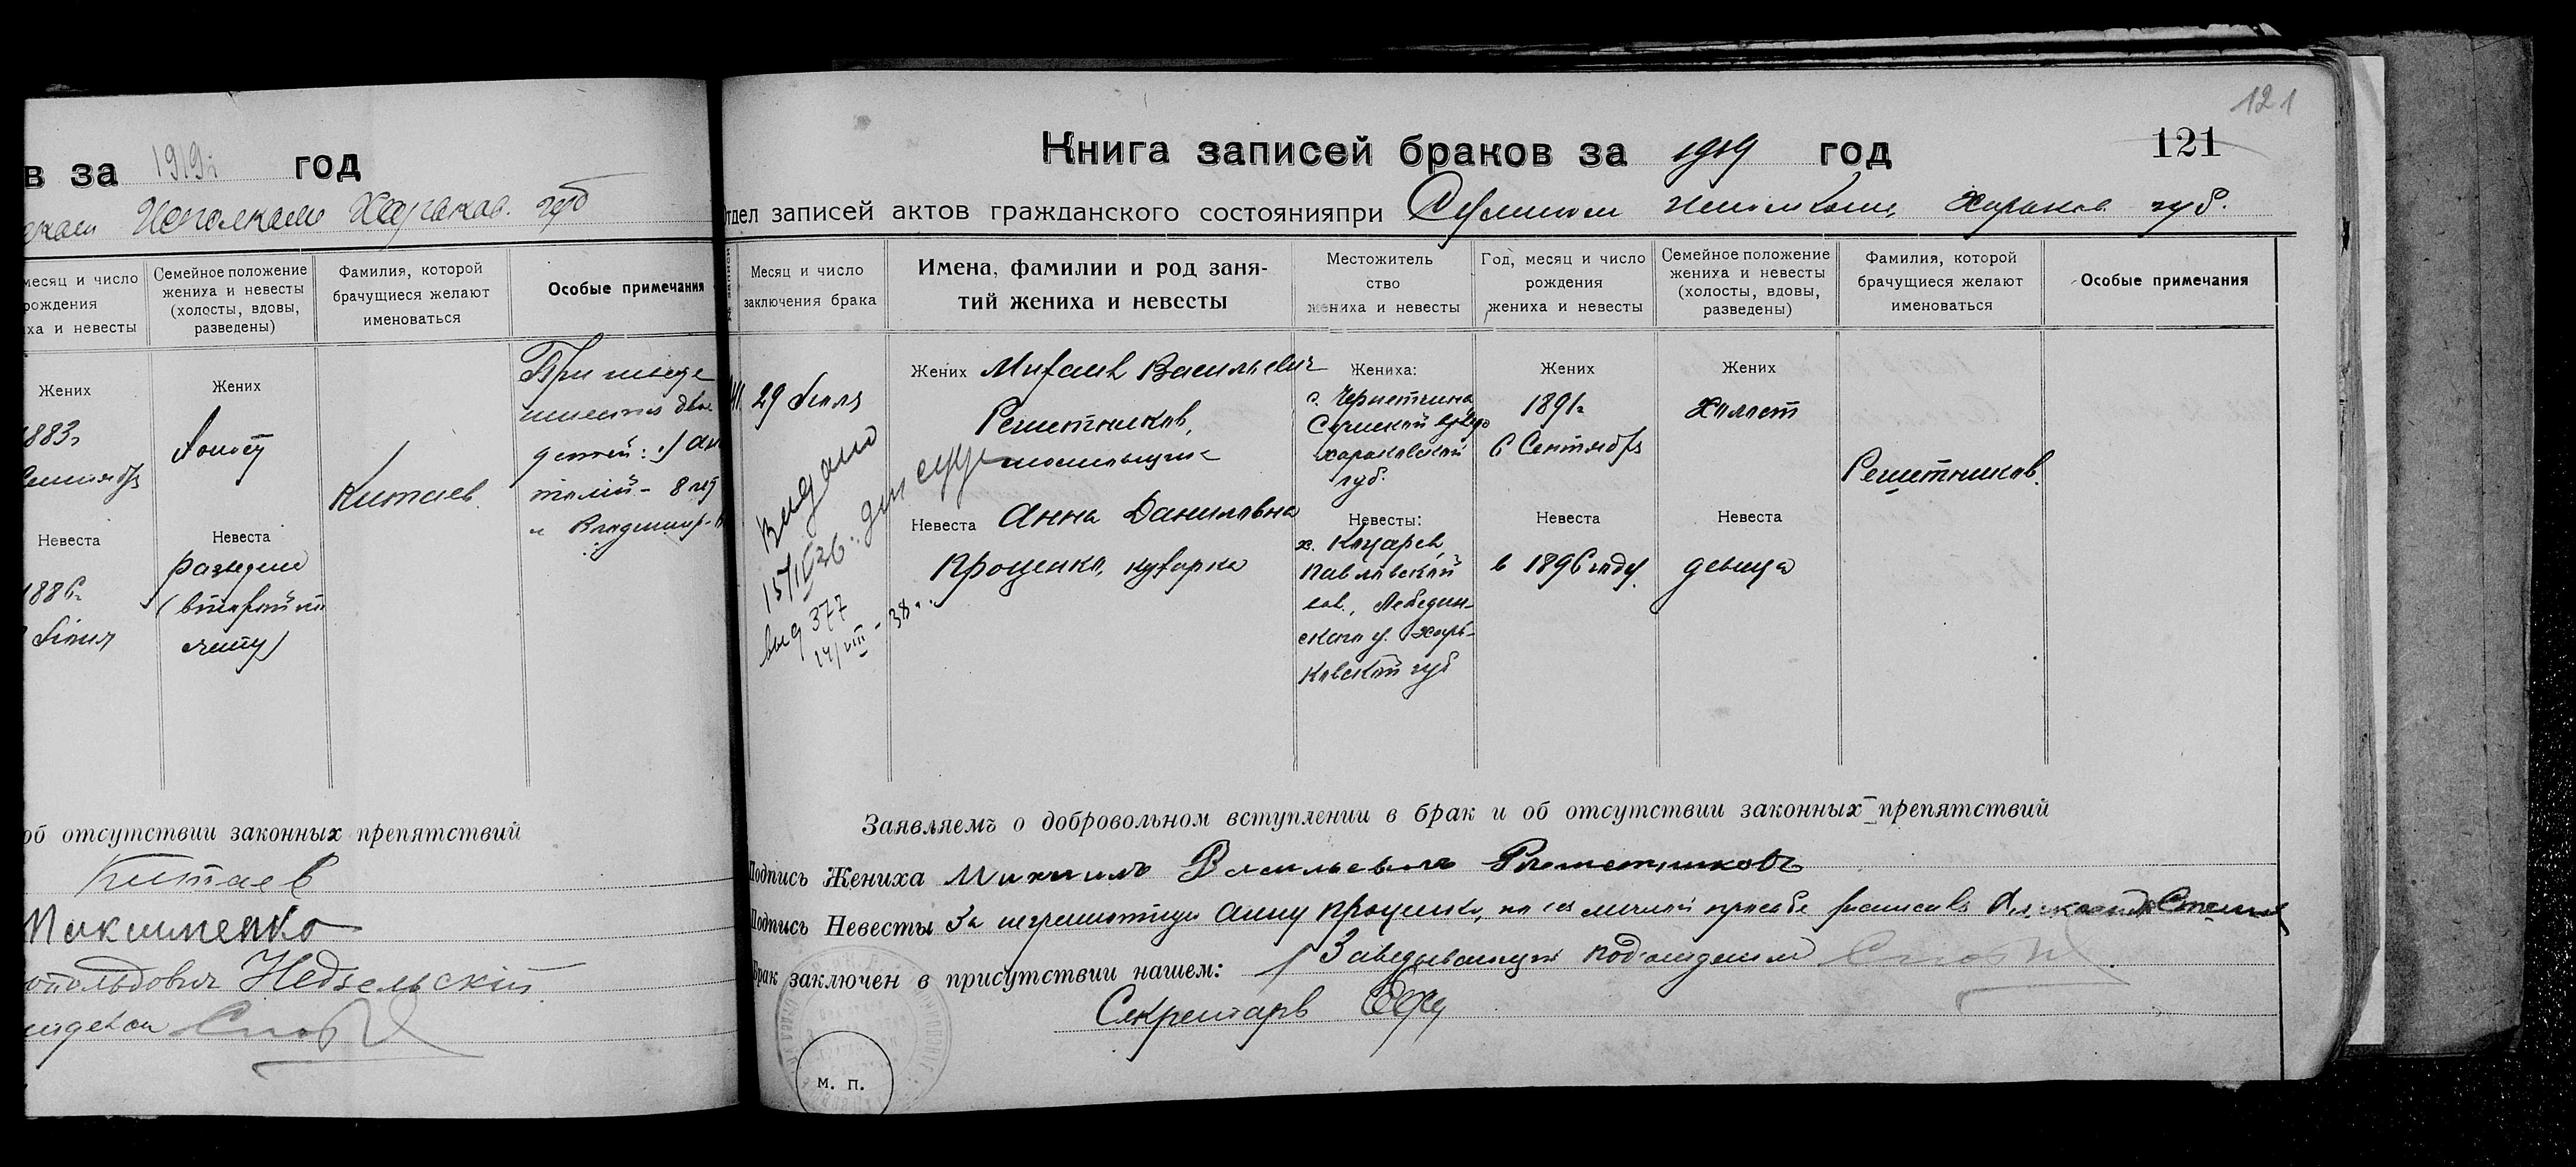 в за 1919г год
Исполкам Харьков. губ
месяц и число
рождения
ха и невесты
Семейное положение
жениха и невесты
(холосты, вдовы,
разведены)
Фамилия, которой
брачущиеся желают
именоваться
Особые примечания
Жених
1883г
Жених
Китаев
детей:
8 лет
и Владимир
Невеста
1886г
Невеста
разведена
об отсутствии законных препятствий
Китаев
опольдович Недзельскій
121
121
Книга записей браков за 1919 год
Отдел записей актов гражданского состоянияпри Сумском Исполкоме, Харьков. губ.
Месяц и число
заключения брака
Имена, фамилии и род заня-
тий жениха и невесты
Местожитель
ство
жениха и невесты
Год, месяц и число
рождения
жениха и невесты
Семейное положение
жениха и невесты
(холосты, вдовы,
разведены)
Фамилия, которой
брачущиеся желают
именоваться
Особые примечания
29 Июля
Жених Михаил Васильевич
Решетников,
Невеста Анна Даниловна
Проценко, кухарка
Видано
15/I 36
выд 377
14/VIII - 38г.
Жениха:
с. Чернетчина
Сумской уезда
харьковской
губ.
Невесты:
х. Коцарев,
Павловской
вол., Лебедин-
скаго у. Харь-
ковской губ
Жених
1891г
6 Сентября
Невеста
в 1896 году.
Жених
Холост
Невеста
девица
Решетников.
Заявляемъ о добровольном вступлении в брак и об отсутствии законных препятствий
Подпись Жениха Михаилъ Васильевичъ Решетниковъ
Подпись Невесты За неграмотную Анну Проценко, по ея личной просьбе росписался
Брак заключен в присутствии нашем: Заведывающий Подотделом
Секретарь
м. п.